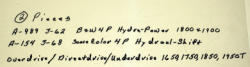 ② Pieces
A-989 J-62 B&W 4P Hydra-Power 1800 & 1900
A-154 J-68 Some Color 4P Hydraul-Shift
Overdrive/Directdrive/Underdrive 1650, 1750, 1850, 1950T